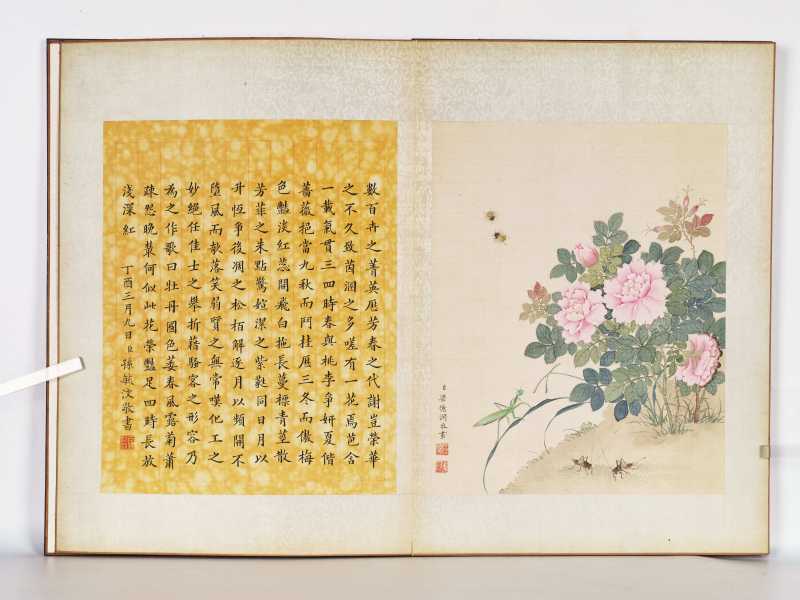 數百卉之菁英應芳春之代謝豈榮華
之不久致茵溷之多嗟有一花焉芭含
一載氣貫三四時春與桃李爭妍夏偕
薔薇挹當九秋而鬥桂應三冬而傲梅
色豔淡紅蕊開飛白拖長蔓標青莖散
芳菲之未點驚姮潔之紫艷同日月以
升恆爭後凋之松柏解逐月以頻開不
隨風而欹落笑弱質之無常嘆化工之
妙絕任佳士之舉折藉騷客之形容乃
為之作歌曰牡丹國色萎春風露菊蕭
疎怨晚叢何似此花榮豔足四時長放
淺深紅
丁酉三月九日 孫毓汶敬書
梁德潤